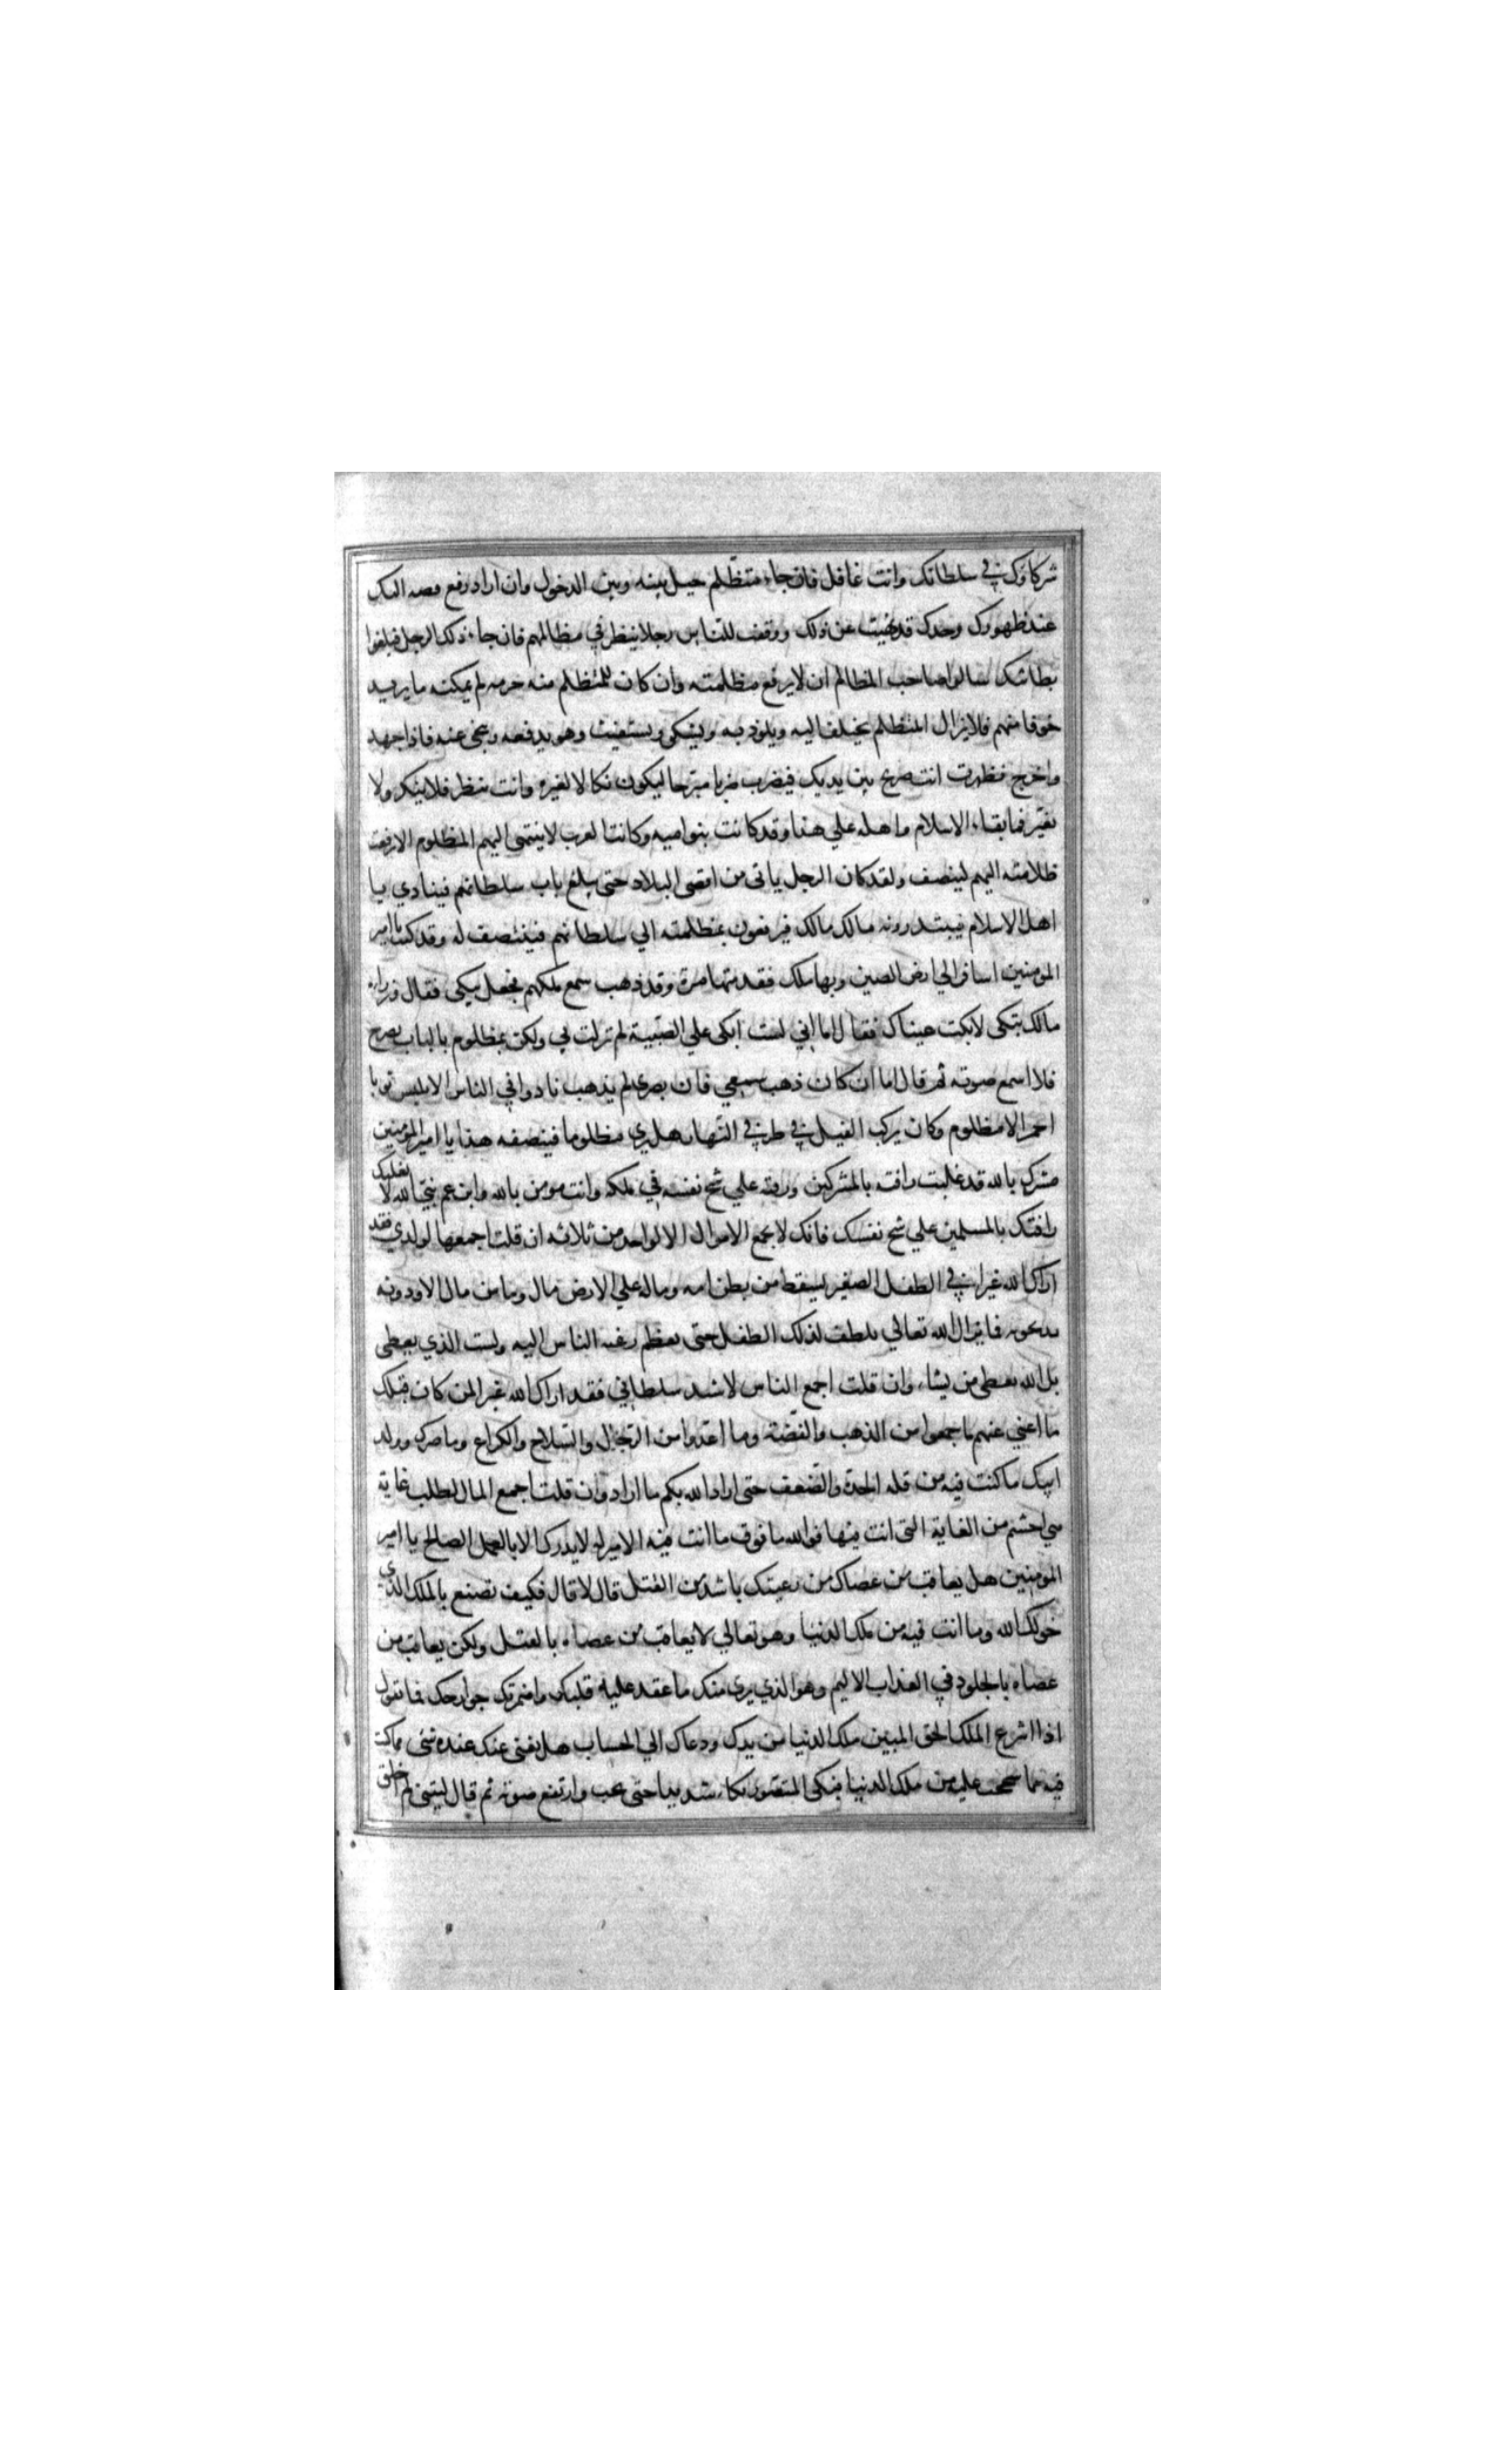 شركاؤك في سلطانك وانت غافل فان جاء متظلم حيل بينه وبين الدخول وان اراد رفع قصه اليك
عند ظهورك وحدك قد نهيت عن ذلك ووقفت للناس رجلا ينظر في مظالمهم فان جاء ذلك الرجل فبلغوا
بطانتك سالوا صاحب المظالم ان لا يرفع مظلمته وان كان للمتظلم منه حرمه لم يمكنه ما يريد
خوفا منهم فلا يزال المتظلم يختلف اليه ويلوذ به ويشكي ويستغيث وهو يدفعه عنه فاذا جهد
واخرج فظهرت انت صرخ بين يديك فيضرب ضربا مبرحا ليكون نكالا لغيره وانت تنظر فلا ينكر ولا
يغير فما بقاء الاسلام واهله علي هذا وقد كانت بنوا اميه وكانت العرب لا ينتهي اليهم المظلوم الا رفعت
ظلامته اليهم لينصف ولقد كان الرجل ياتي من اقصي البلاد حتي يبلغ باب سلطانهم فينادي يا
اهل الاسلام فيبتدرونه مالك مالك فيرفعون بمظلمته الي سلطانهم فينتصف له وقد كنت يا امير
المومنين اسافر الي ارض الصين وبها ملك فقدمتها مرة وقد ذهب سمع ملكهم فجعل يبكي فقال وزراءه
مالك تبكي لا بكت عيناك فقال اما اني لست ابكي علي المصيبة لم نزلت بي ولكن بمظلوم بالباب يصرخ
فلا اسمع صوته ثم قال اما ان كان ذهب سمعي فان بصري لم يذهب نادوا في الناس الا لا يلبس ثوبا
احمر الا مظلوم وكان يركب الفيل في طرفي النهار هل يري مظلوما فينصفه هذا يا امير المومنين
مشرك بالله قد غلبت رافته بالمشركين ورقته علي شح نفسه في ملكه وانت مومن بالله وابن عم نبي الله لا تغلبك
رافتك بالمسلمين علي شح نفسك فانك لا تجمع الاموال الا لواحد من ثلاثه ان قلت اجمعها لولدي فقد
اراك الله عبرا في الطفل الصغير يسقط من بطن امه وماله علي الارض مال وما من مال الا ودونه
يد تحويه فما يزال الله تعالي يلطف لذلك الطفل حتي يعظم رغبه الناس اليه ولست الذي يعطي
بل الله يعطي من يشاء وان قلت اجمع الناس لاشد سلطاني فقد اراك الله عبرا لمن كان قبلك
ما اغني عنهم ما جمعوا من الذهب والفضة وما اعدوا من الرجال والسلاح والكراع وما ضرك وولد
ابيك ما كنت فيه من قله الجدة والضعف حتي اراد الله بكم ما اراد وان قلت اجمع المال لطلب غاية
هي احشم من الغاية التي انت فيها فوالله ما فوق ما انت فيه الا منزله لا يدرك الا بالعمل الصالح يا امير
المومنين هل يعاقب من عصاك من رعيتك باشد من القتل قال لا قال فكيف تصنع بالملك الذي
خولك الله وما انت فيه من ملك الدنيا وهو تعالي لا يعاقب من عصاه بالقتل ولكن يعاقب من
عصاه بالخلود في العذاب الاليم وهو الذي يري منك ما عقد عليه قلبك واضمرتك جوارحك فما تقول
اذا انتزع الملك الحق المبين ملك الدنيا من يدك ودعاك الي الحساب هل يغني عنك عنده شي مما كنت
فيه مما شححت عليه من ملك الدنيا فبكي المنصور بكاء شديدا حتي نحب وارتفع صوته ثم قال ليتني لم اخلق